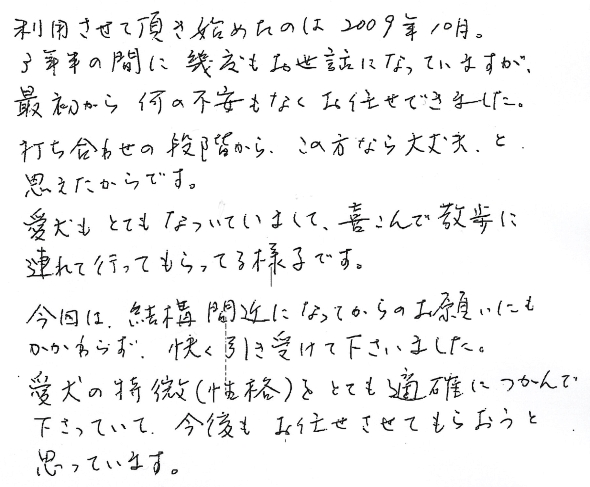 利用させて頂き始めたのは2009年10月。
3年半の間に幾度もお世話になっていますが、
最初から何の不安もなくお任せできました。
打ち合わせの段階から、この方なら大丈夫、と
思えたからです。
愛犬もとてもなついていまして、喜こんで散歩に
連れて行ってもらってる様子です。
今回は、結構間近になってからのお願いにも
かかわらず、快く引き受けて下さいました。
愛犬の特徴(性格)をとても適確につかんで
下さっていて、今後もお任せさせてもらおうと
思っています。